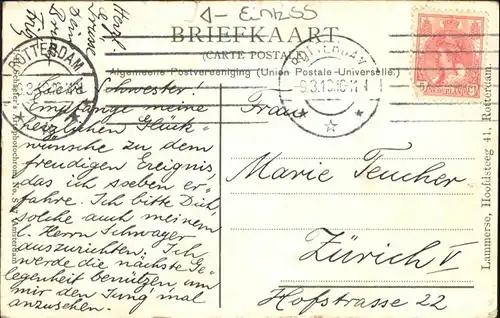 △- Einkss
BRIEFKAART
(CARTE POSTALE)
Algemeene Postvereeniging (Union Postale Universelle.)
ROTTERDAM
ROTTERDAM
9.3.13.
NEDERLAND
5
Liebe Schwester!
Empfange meine
herzlichen Glück-
wünsche zu dem
freudigen Ereignis,
das ich soeben er-
fahre. Ich bitte Dich,
solche auch meinem
l. Herrn Schwager
auszurichten. Ich
werde die nächste Ge-
legenheit benützen, um
mir den Jung' mal
anzusehen.
Herzl.
Frau
Marie Teucher
Zürich V
Hofstrasse 22
Lammerso, Hoofdsteeg 41, Rotterdam.